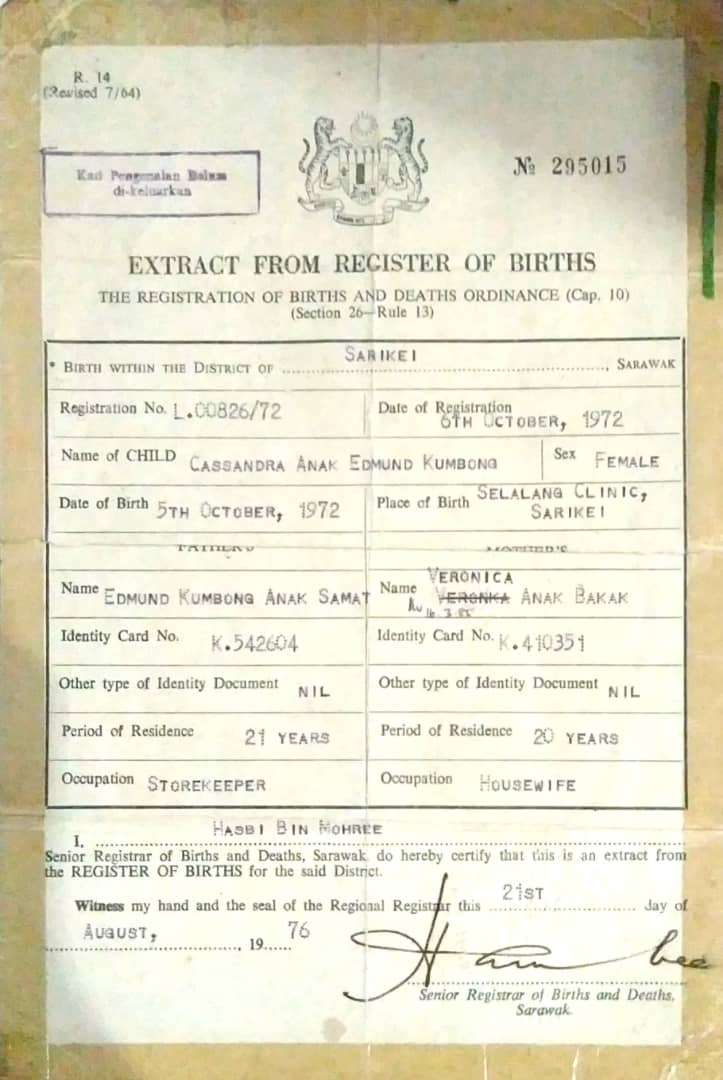 R. 14
(Revised 7/64)
Kad Pengenalan Dalam
di-keluarkan
№ 295015
EXTRACT FROM REGISTER OF BIRTHS
THE REGISTRATION OF BIRTHS AND DEATHS ORDINANCE (Cap. 10)
(Section 26—Rule 13)
* BIRTH WITHIN THE DISTRICT OF SARIKEI, SARAWAK
Registration No. L.00826/72 Date of Registration 6TH OCTOBER, 1972
Name of CHILD CASSANDRA ANAK EDMUND KUMBONG Sex FEMALE
Date of Birth 5TH OCTOBER, 1972 Place of Birth SELALANG CLINIC,
SARIKEI
FATHER'S MOTHER'S
Name EDMUND KUMBONG ANAK SAMAT Name VERONICA
VERONKA ANAK BAKAK
16.3.85
Identity Card No. K.542604 Identity Card No. K.410351
Other type of Identity Document NIL Other type of Identity Document NIL
Period of Residence 21 YEARS Period of Residence 20 YEARS
Occupation STOREKEEPER Occupation HOUSEWIFE
I, HASBI BIN MOHREE
Senior Registrar of Births and Deaths, Sarawak do hereby certify that this is an extract from
the REGISTER OF BIRTHS for the said District.
Witness my hand and the seal of the Regional Registrar this 21ST Jay of
AUGUST, 1976
Senior Registrar of Births and Deaths,
Sarawak.